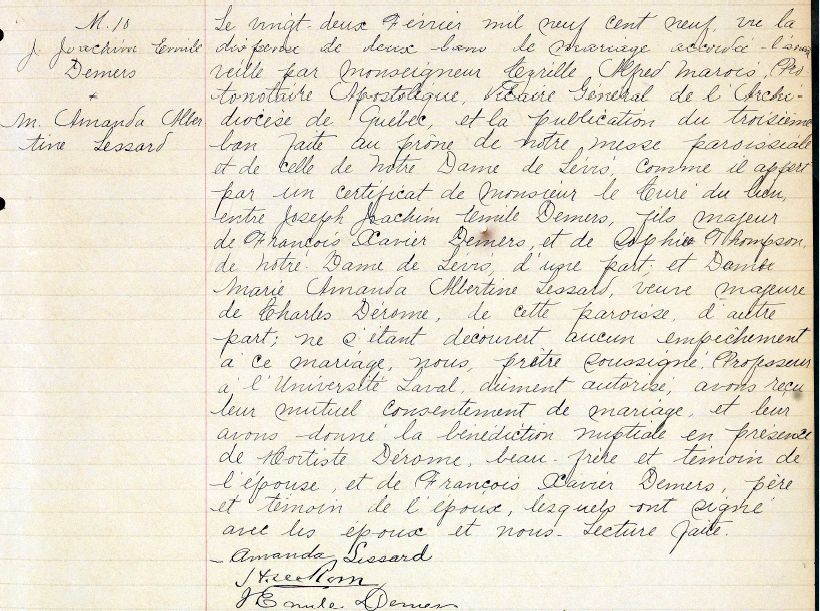 M. 10
J. Joachim Emile
Demers
&
M. Amanda Alber
tine Lessard
Le vingt-deux Février mil neuf cent neuf, vu la
dispense de deux bans de mariage accordée l'avant
veille par Monseigneur Cyrille Alfred Marois, Pro
tonotaire Apostolique, Vicaire Général de l'Archi-
diocèse de Québec, et la publication du troisième
ban faite au prône de notre messe paroissiale
et de celle de Notre Dame de Lévis, comme il appert
par un certificat de Monsieur le Curé du lieu,
entre Joseph Joachim Emile Demers, fils majeur
de François Xavier Demers, et de Sophie Thompson,
de Notre Dame de Lévis, d'une part; et Dame
Marie Amanda Albertine Lessard, veuve majeure
de Charles Dérome, de cette paroisse, d'autre
part; ne s'étant découvert aucun empêchement
à ce mariage, nous, prêtre soussigné, Professeur
à l'Université Laval, dûment autorisé, avons reçu
leur mutuel consentement de mariage, et leur
avons donné la bénédiction nuptiale en présence
de Dérome, beau-frère et témoin de
l'épouse, et de François Xavier Demers, père
et témoin de l'époux, lesquels ont signé
avec les époux et nous. Lecture faite.
Amanda Lessard
J Emile Demers